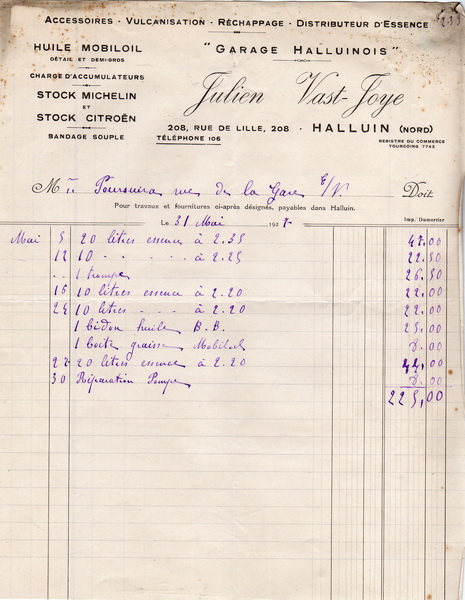 ACCESSOIRES - VULCANISATION - RÉCHAPPAGE - DISTRIBUTEUR D'ESSENCE
HUILE MOBILOIL
DÉTAIL ET DEMI-GROS
CHARGE D'ACCUMULATEURS
STOCK MICHELIN
ET
STOCK CITROËN
BANDAGE SOUPLE
"GARAGE HALLUINOIS"
Julien Vast-Joye
208, RUE DE LILLE, 208 - HALLUIN (NORD)
TÉLÉPHONE 106
REGISTRE DU COMMERCE
TOURCOING 7743
M rue de la Gare E/V Doit
Pour travaux et fournitures ci-après désignés, payables dans Halluin.
Le 31 Mai 192 Imp. Dumortier
Mai 5 20 litres essence à 2.35 47.00
12 10 - - - à 2.25 22.50
.. 1 trompe 26.50
16 10 litres essence à 2.20 22.00
24 10 litres - - - à 2.20 22.00
1 bidon huile B.B. 25.00
1 boite graisse Mobiloil 8.00
27 20 litres essence à 2.20 44.00
30 Réparation Pompe 8.00
225,00